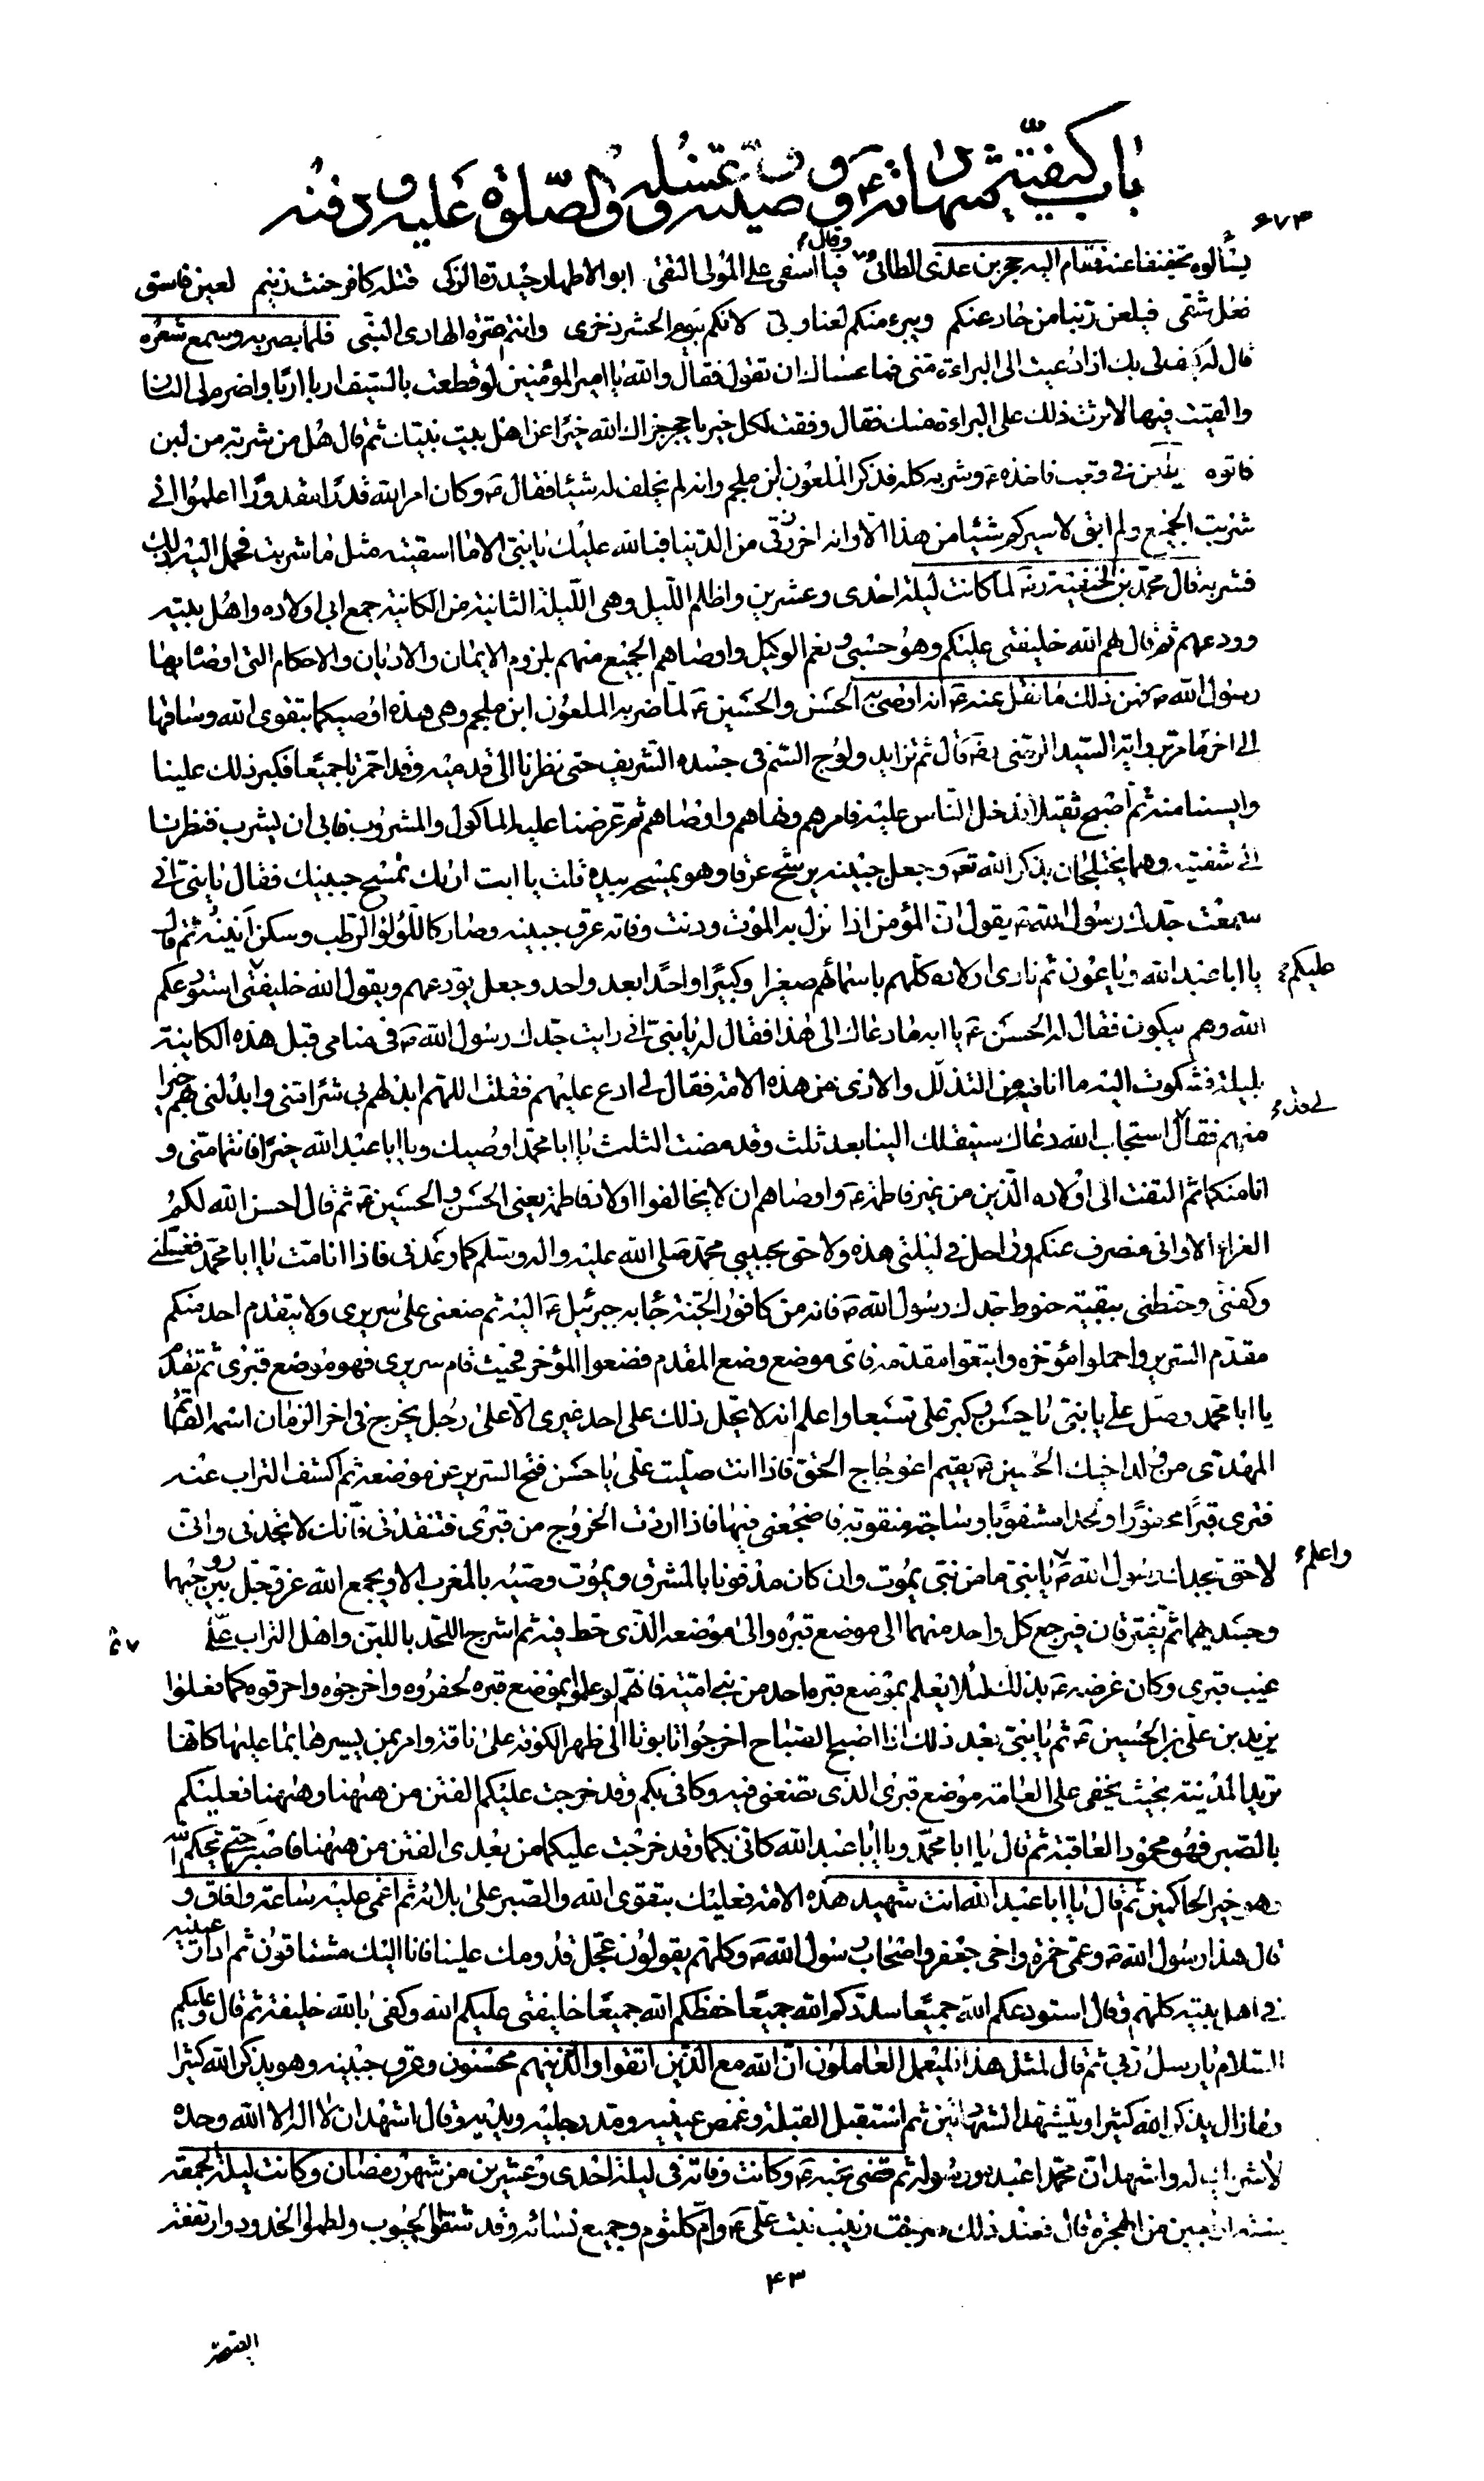 باب كيفيّة شهادته ع و وصيته و غسله والصّلوة عليه و دفنه
٦٧٣
يسألوه تخفيفا عنه فقام اليه حجر بن عدى الطائى وقال فيا اسفى على المولى التقى ابو الاطهار حيدرة الزكى قتله كافر حنث زنيم لعين فاسق
نغل شقى فيلعن ربنا من حاد عنكم ويبرء منكم لعنا وبى لانكم بيوم الحشر ذخرى وانتم عترة الهادى النبى فلما بصر به وسمع شعره
قال له كيف لى بك اذا دعيت الى البراءة منى فما عساك ان تقول فقال والله يا امير المؤمنين لو قطعت بالسيف اربا اربا واضرم لى النار
والقيت فيها لاثرت ذلك على البراءة منك فقال وفقت لكل خير يا حجر جزاك الله خيرا عن اهل بيت نبيك ثم قال هل من شربة من لبن
فاتوه بلبن فى قعب فاخذه ع وشربه كله فذكر الملعون ابن ملجم وانه لم يخلف له شيئا فقال ع وكان امر الله قدرا مقدورا اعلموا انى
شربت الجميع ولم ابق لاسيركم شيئا من هذا الا وانه اخر رزقى من الدنيا فبالله عليك يا بنى الا ما اسقيته مثل ما شربت فحمل اليه ذلك
فشربه قال محمد بن الحنفية رضه لما كانت ليلة احدى وعشرين واظلم الليل وهى الليلة الثانية من الكائنة جمع ابى اولاده واهل بيته
وودعهم ثم قال لهم الله خليفتى عليكم وهو حسبى ونعم الوكيل واوصاهم الجميع منهم بلزوم الايمان والاديان والاحكام التى اوصاه بها
رسول الله ص فمن ذلك ما نقل عنه ع انه اوصى به الحسن والحسين ع لما ضربه الملعون ابن ملجم وهى هذه اوصيكما بتقوى الله وساقها
الى اخر ما مر برواية السيد الرضى رضه قال ثم تزايد ولوج السم فى جسده الشريف حتى نظرنا الى قدميه وقد احمرتا جميعا فكبر ذلك علينا
وايسنا منه ثم اصبح ثقيلا فدخل الناس عليه فامرهم ونهاهم واوصاهم ثم عرضنا عليه الماكول والمشروب فابى ان يشرب فنظرنا
الى شفتيه وهما يختلجان بذكر الله تعم وجعل جبينه يرشح عرقا وهو يمسحه بيده قلت يا ابت اراك تمسح جبينك فقال يا بنى انى
سمعت جدك رسول الله ص يقول ان المؤمن اذا نزل به الموت ودنت وفاته عرق جبينه وصار كاللؤلؤ الرطب وسكن انينه ثم قال
يا ابا عبد الله ويا عون ثم نادى اولاده كلهم باسمائهم صغيرا وكبيرا واحدا بعد واحد وجعل يودعهم ويقول الله خليفتى عليكم استودعكم
الله وهم يبكون فقال له الحسن ع يا ابه ما دعاك الى هذا فقال له يا بنى انى رايت جدك رسول الله ص فى منامى قبل هذه الكائنة
بليلة فشكوت اليه ما انا فيه من التذلل والاذى من هذه الامة فقال لى ادع عليهم فقلت اللهم ابدلهم بى شرا منى وابدلنى بهم خيرا
منهم فقال لى قد استجاب الله دعاك سينقلك الينا بعد ثلث وقد مضت الثلث يا ابا محمد اوصيك ويا ابا عبد الله خيرا فانتما منى و
انا منكما ثم التفت الى اولاده الذين من غير فاطمة ع واوصاهم ان لا يخالفوا اولاد فاطمة يعنى الحسن والحسين ع ثم قال احسن الله لكم
العزاء الا وانى منصرف عنكم وراحل فى ليلتى هذه ولاحق بحبيبى محمد صلى الله عليه واله وسلم كما وعدنى فاذا انا مت يا ابا محمد فغسلنى
وكفنى وحنطنى ببقية حنوط جدك رسول الله ص فانه من كافور الجنة جاء به جبرئيل ع اليه ثم ضعنى على سريرى ولا يتقدم احد منكم
مقدم السرير واحملوا مؤخره واتبعوا مقدمه فاى موضع وضع المقدم فضعوا المؤخر فحيث قام سريرى فهو موضع قبرى ثم تقدم
يا ابا محمد وصل على يا بنى يا حسن وكبر على سبعا واعلم انه لا يحل ذلك على احد غيرى الا على رجل يخرج فى اخر الزمان اسمه القائم
المهدى من ولد اخيك الحسين ع يقيم اعوجاج الحق فاذا انت صليت على يا حسن فنح السرير عن موضعه ثم اكشف التراب عنه
فترى قبرا محفورا ولحدا مشقوبا وساجة منقوبة فاضجعنى فيها فاذا اردت الخروج من قبرى فتفقدنى فانك لا تجدنى وانى
لاحق بجدك رسول الله ص واعلم يا بنى ما من نبى يموت وان كان مدفونا بالمشرق ويموت وصيه بالمغرب الا ويجمع الله عز وجل بين روحيهما
وجسديهما ثم يفترقان فيرجع كل واحد منهما الى موضع قبره والى موضعه الذى حط فيه ثم اشرج اللحد باللبن واهل التراب على ثم
غيب قبرى وكان غرضه ع بذلك لئلا يعلم بموضع قبره احد من بنى امية فانهم لو علموا بموضع قبره لحفروه واخرجوه واحرقوه كما فعلوا
بزيد بن على بن الحسين ع ثم يا بنى بعد ذلك اذا اصبح الصباح اخرجوا تابوتا الى ظهر الكوفة على ناقة وامر بمن يسيرها بما عليها كانها
تريد المدينة بحيث يخفى على العامة موضع قبرى الذى تضعنى فيه وكانى بكم وقد خرجت عليكم الفتن من هيهنا وهيهنا فعليكم
بالصبر فهو محمود العاقبة ثم قال يا ابا محمد ويا ابا عبد الله كانى بكما وقد خرجت عليكما من بعدى الفتن من هيهنا فاصبرا حتى يحكم الله
وهو خير الحاكمين ثم قال يا ابا عبد الله انت شهيد هذه الامة فعليك بتقوى الله والصبر على بلائه ثم اغمى عليه ساعة وافاق و
قال هذا رسول الله ص وعمى حمزة واخى جعفر واصحاب رسول الله ص وكلهم يقولون عجل قدومك علينا فانا اليك مشتاقون ثم ادار عينيه
فى اهل بيته كلهم وقال استودعكم الله جميعا سددكم الله جميعا حفظكم الله جميعا خليفتى عليكم الله وكفى بالله خليفة ثم قال وعليكم
السلام يا رسل ربى ثم قال لمثل هذا فليعمل العاملون ان الله مع الذين اتقوا والذينهم محسنون وعرق جبينه وهو يذكر الله كثيرا
وما زال يذكر الله كثيرا ويتشهد الشهادتين ثم استقبل القبلة وغمض عينيه ومد رجليه ويديه وقال اشهد ان لا اله الا الله وحده
لا شريك له واشهد ان محمدا عبده ورسوله ثم قضى نحبه ع وكانت وفاته فى ليلة احدى وعشرين من شهر رمضان وكانت ليلة الجمعة
سنة اربعين من الهجرة قال فعند ذلك صرخت زينب بنت على ع وام كلثوم وجميع نسائه وقد شققوا الجيوب ولطموا الخدود وارتفعت
٤٣
الصيحة